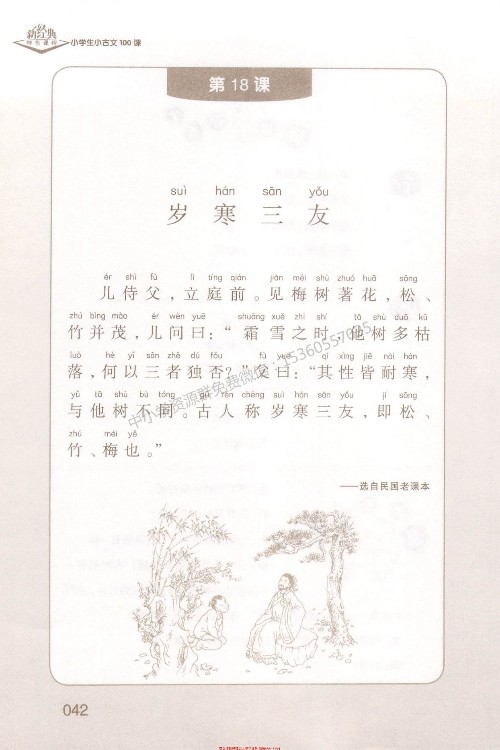 新经典
小学生小古文100课
第18课
suì hán sān yǒu
岁寒三友
ér shì fù lì tíng qián jiàn méi shù zhuó huā sōng
儿侍父，立庭前。见梅树著花，松、
zhú bìng mào ér wèn yuē shuāng xuě zhī shí tā shù duō kū
竹并茂，儿问曰：“霜雪之时，他树多枯
luò hé yǐ sān zhě dú fǒu fù yuē qí xìng jiē nài hán
落，何以三者独否？”父曰：“其性皆耐寒，
yǔ tā shù bù tóng gǔ rén chēng suì hán sān yǒu jí sōng
与他树不同。古人称岁寒三友，即松、
zhú méi yě
竹、梅也。”
——选自民国老课本
042